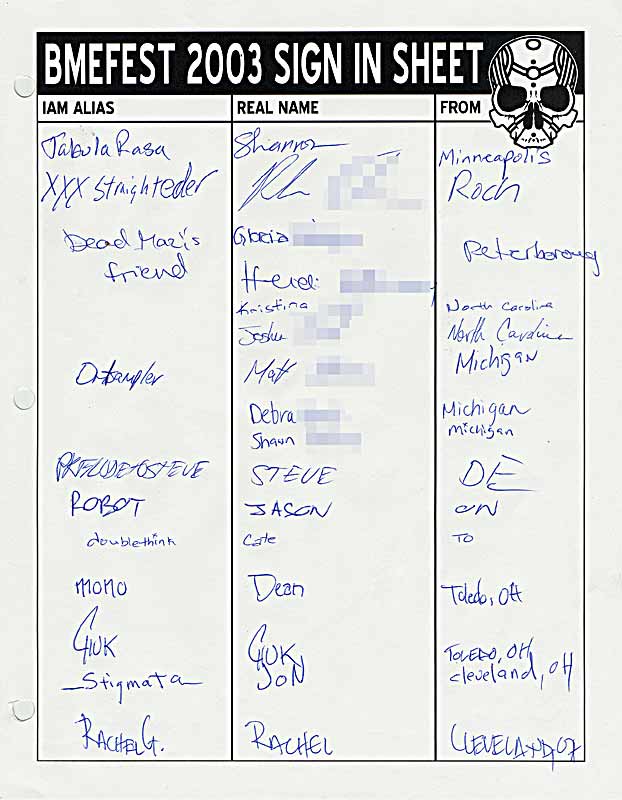 BMEFEST 2003 SIGN IN SHEET
IAM ALIAS REAL NAME FROM
Tabula Rasa Shannon Minneapolis
XXX Straighteder Roch
Dead Mari's Gloria Peterboroug
friend Heidi
Kristina North Carolina
Joshu North Carolina
Matt Michigan
Debra Michigan
Shawn michigan
STEVE DE
ROBOT JASON ON
doublethink Cate TO
MOMO Dean Toledo, OH
CHUK CHUK TOLEDO, OH
Stigmata JON cleveland, OH
RACHEL G. RACHEL CLEVELAND, OH